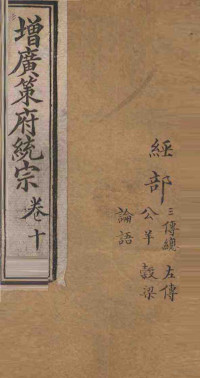 增廣策府統宗 卷十
經部
三傳總 左傳
公羊 穀梁
論語